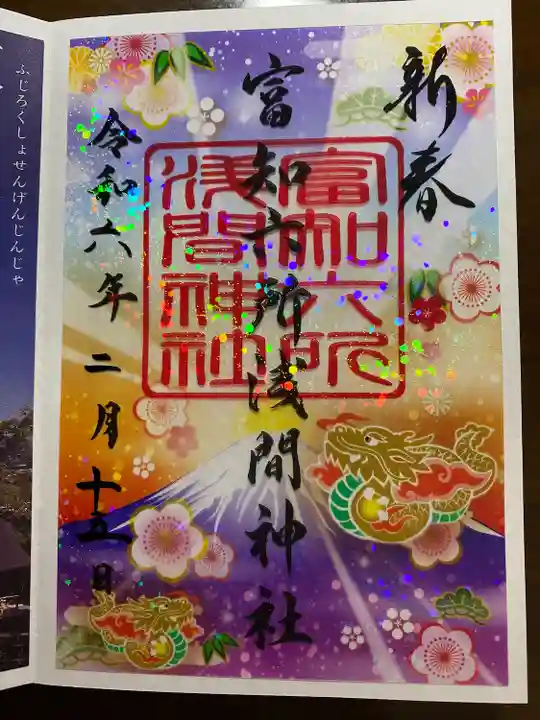 新春
富知六所浅間神社
令和六年二月十五日
富知六所
浅間神社
ふじろくしょせんげんじんじゃ